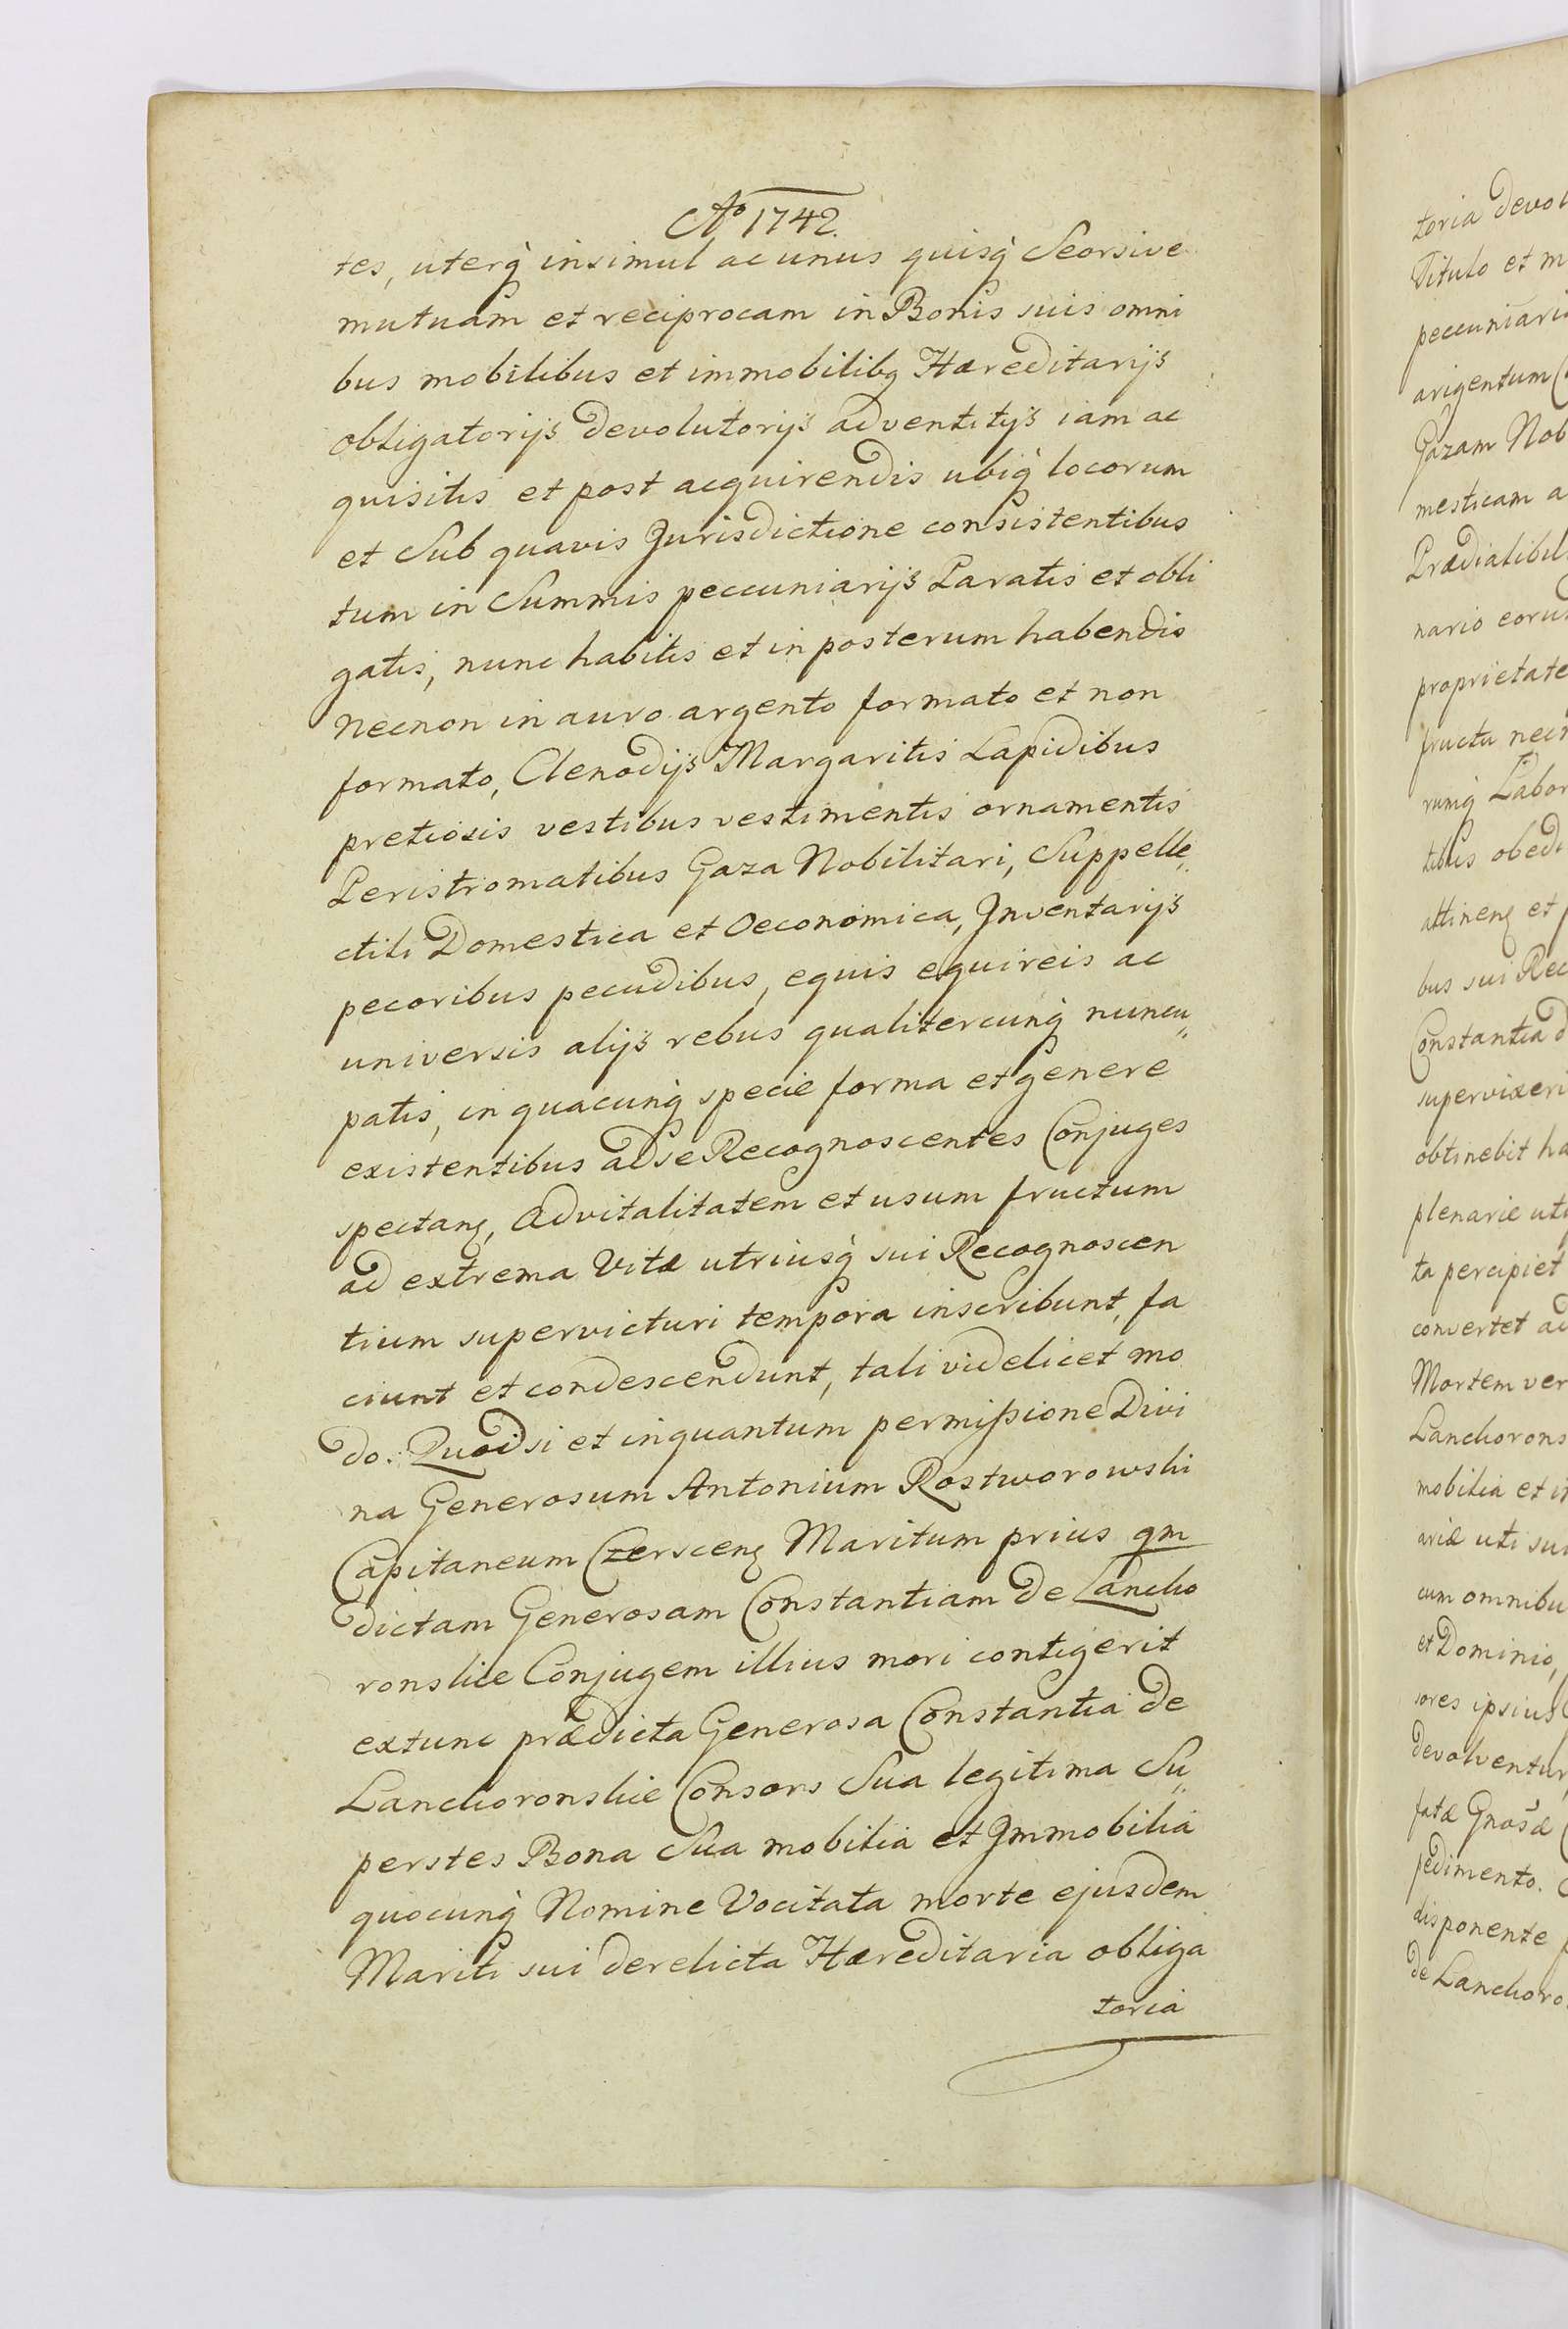 Aº 1742.
tes, uterq̀ insimul ac unus quisq̀ Seorsive
mutuam et reciprocam in Bonis suis omni
bus mobilibus et immobilibq Hæreditarijs
obligatorijs devolutorijs adventitijs iam ac
quisitis et post acquirendis ubiq̀ locorum
et Sub quavis Jurisdictione consistentibus
tum in Summis peccuniarijs Paratis et obli
gatis, nunc habitis et in posterum habendis
necnon in auro argento formato et non
formato, Clenodijs Margaritis Lapidibus
pretiosis vestibus vestimentis ornamentis
Peristromatibus Gaza Nobilitari, Suppelle„
ctili Domestica et Oeconomica, Jnventarijs
pecoribus pecudibus, equis equireis ac
universis alijs rebus qualitercunq̀ nuncu„
patis, in quacunq̀ specie forma et genere
existentibus ad se Recognoscentes Conjuges
spectanę, Advitalitatem et usum fructum
ad extrema Vitæ utriusq̀ sui Recognoscen
tium supervicturi tempora inscribunt, fa
ciunt et condescendunt, tali videlicet mo
do: Quod si et inquantum permissione Divi
na Generosum Antonium Rostworowski
Capitaneum Czerscenę Maritum prius qm
dictam Generosam Constantiam de Lancko
ronskie Conjugem illius mori contigerit
extunc prædicta Generosa Constantia de
Lanckoronskie Consors Sua legitima Su„
perstes Bona Sua mobilia et Jmmobilia
quocunq̀ Nomine Vocitata morte ejusdem
Mariti sui derelicta Hæreditaria obliga
toria
toria devol
Titulo et m
peccuniari
arigentum
Gazam Nob
mesticam a
Prædialibu
nario eoru
proprietate
fructu nec
rumq̀ Labor
tibus obedi
attinenę et
bus sui Rec
Constantia d
supervixeri
obtinebit ha
plenarie uti
ta percipiet
convertet ad
Mortem ver
Lanckorons
mobilia et i
ariæ uti su
cum omnibu
et Dominio,
sores ipsius
devolventur,
fatæ Gnosæ
pedimento.
disponente
de Lanckoro